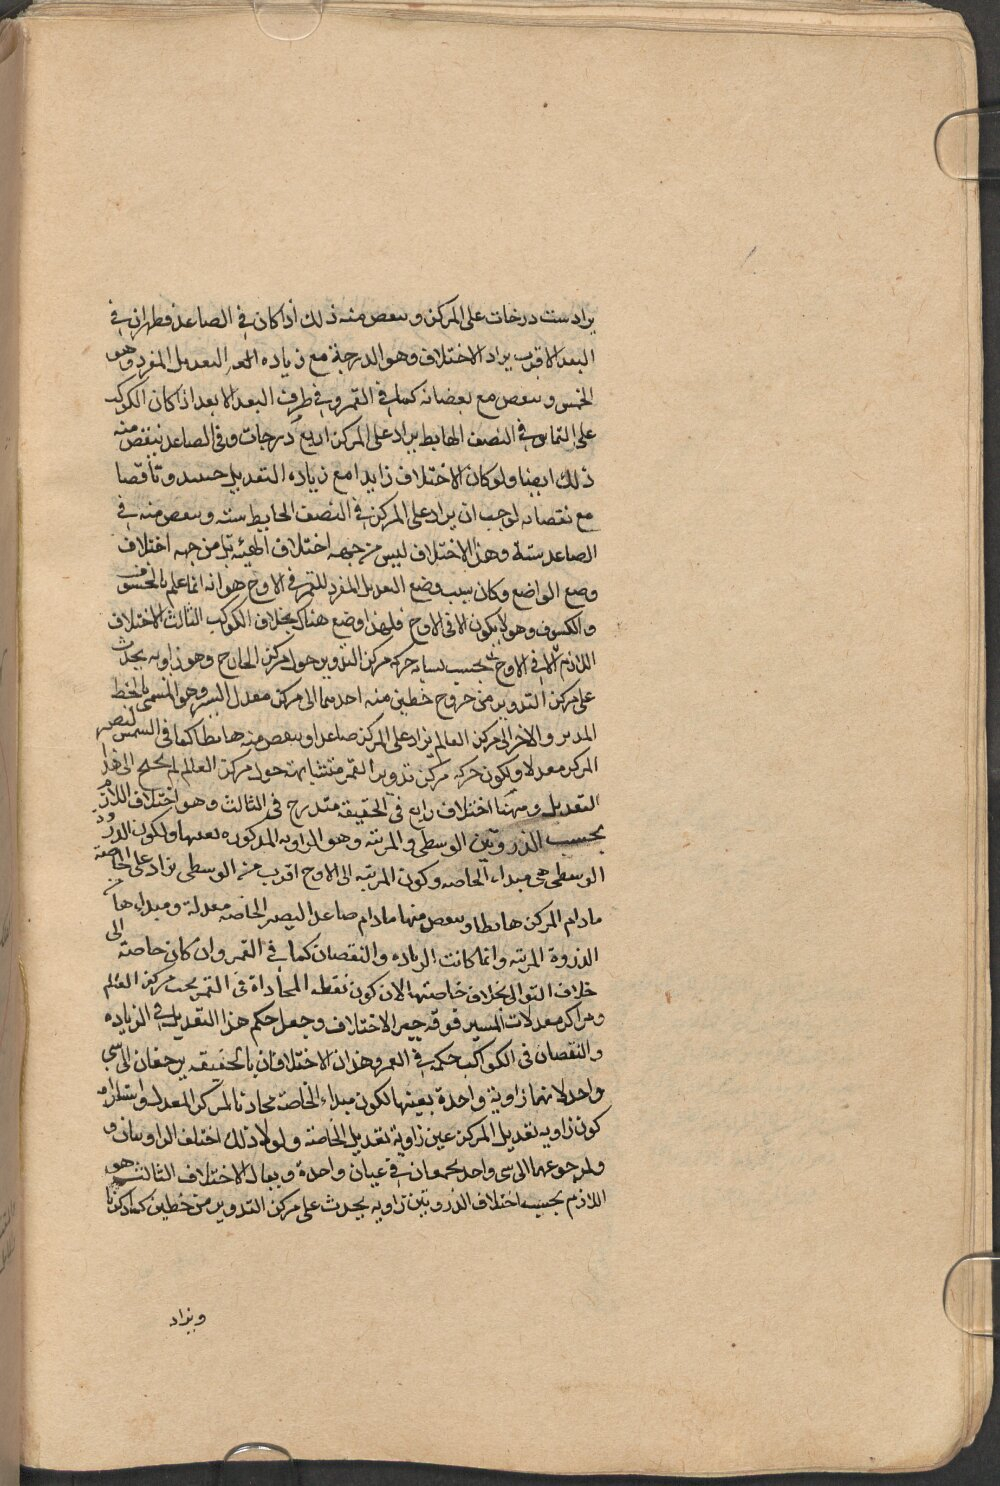 يزاد ست درجات على المركز وينقص منه ذلك اذا كان في الصاعد فظهر ان في
البعد الاقرب يزاد الاختلاف وهو الدرجة مع زياده التعديل المفرد وهو
الخمس وينقص مع نقصانه كما في القمر وفي طرف البعد الابعد اذا كان الكوكب
على التماس في النصف الهابط يزاد على المركز اربع درجات وفى الصاعد ينقص منه
ذلك ايضا ولو كان الاختلاف زايدا مع زياده التعديل حينيد وناقصا
مع نقصانه لوجب ان يزاد على المركز في النصف الهابط سته وينقص منه في
الصاعد ستة وهذا الاختلاف ليس من جهه اختلاف الهيئه بل من جهه اختلاف
وضع الواضع وكان سبب وضع التعديل المفرد للقمر في الاوج هو انه انما علم بالخسوف
والكسوف وهو لا يكون الا في الاوج فلهذا وضع هناك بخلاف الكوكب الثالث الاختلاف
اللازم لا في الاوج بحسب تشابه حركه مركز التدوير حول مركز الخارج وهو زاويه يحدث
على مركز التدوير من خروج خطين منه احدهما الى مركز معدل المسير وهو المسمى بالخط
المدير والاخر الى مركز العالم يزاد على المركز صاعدا وينقص منه هابطا كما في الشمس ليصير
المركز معدلا ولكون حركه مركز تدوير القمر متشابهة حول مركز العالم لم يحتج الى هذا
التعديل وههنا اختلاف رابع في الحقيقة مندرج في الثالث وهو اختلاف اللازم
بحسب الذروتين الوسطى والمرئيه وهو الزاويه المذكوره بعينها ولكون الذروة
الوسطى هى مبداء الخاصه وكون المرئيه الى الاوج اقرب من الوسطى يزاد على الخاصة
مادام المركز هابطا وينقص منها مادام صاعدا ليصير الخاصه معدلة ومبداءها
الذروة المرئيه وانما كانت الزياده والنقصان كما في القمر وان كان خاصته الى
خلاف التوالي بخلاف خاصتها لان كون نقطه المحاذاة في القمر تحت مركز العالم
ومراكز معدلات المسير فوقه جبر الاختلاف وجعل حكم هذا التعديل في الزياده
والنقصان في الكواكب حكمه في القمر وهذان الاختلافان بالحقيقه يرجعان الى شى
واحد لانهما زاوية واحدة بعينها لكون مبداء الخاصه محاذيا لمركز المعدل واستلزامه
كون زاويه تعديل المركز عين زاوية تعديل الخاصة ولولا ذلك اختلف الزاويتان و
ولرجوعهما الى شى واحد يجمعان في عيان واحدة ويقال الاختلاف الثالث هو
اللازم بحسب اختلاف الذروتين زاويه يحدث على مركز التدوير من خطين كما ذكرنا
ويزاد